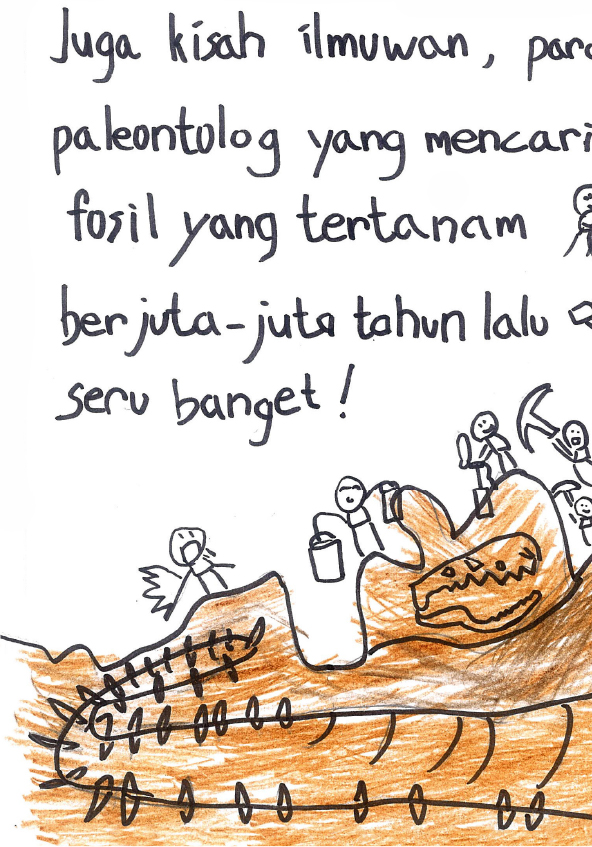 Juga kisah ilmuwan, para
paleontolog yang mencari
fosil yang tertanam
berjuta-juta tahun lalu
seru banget!